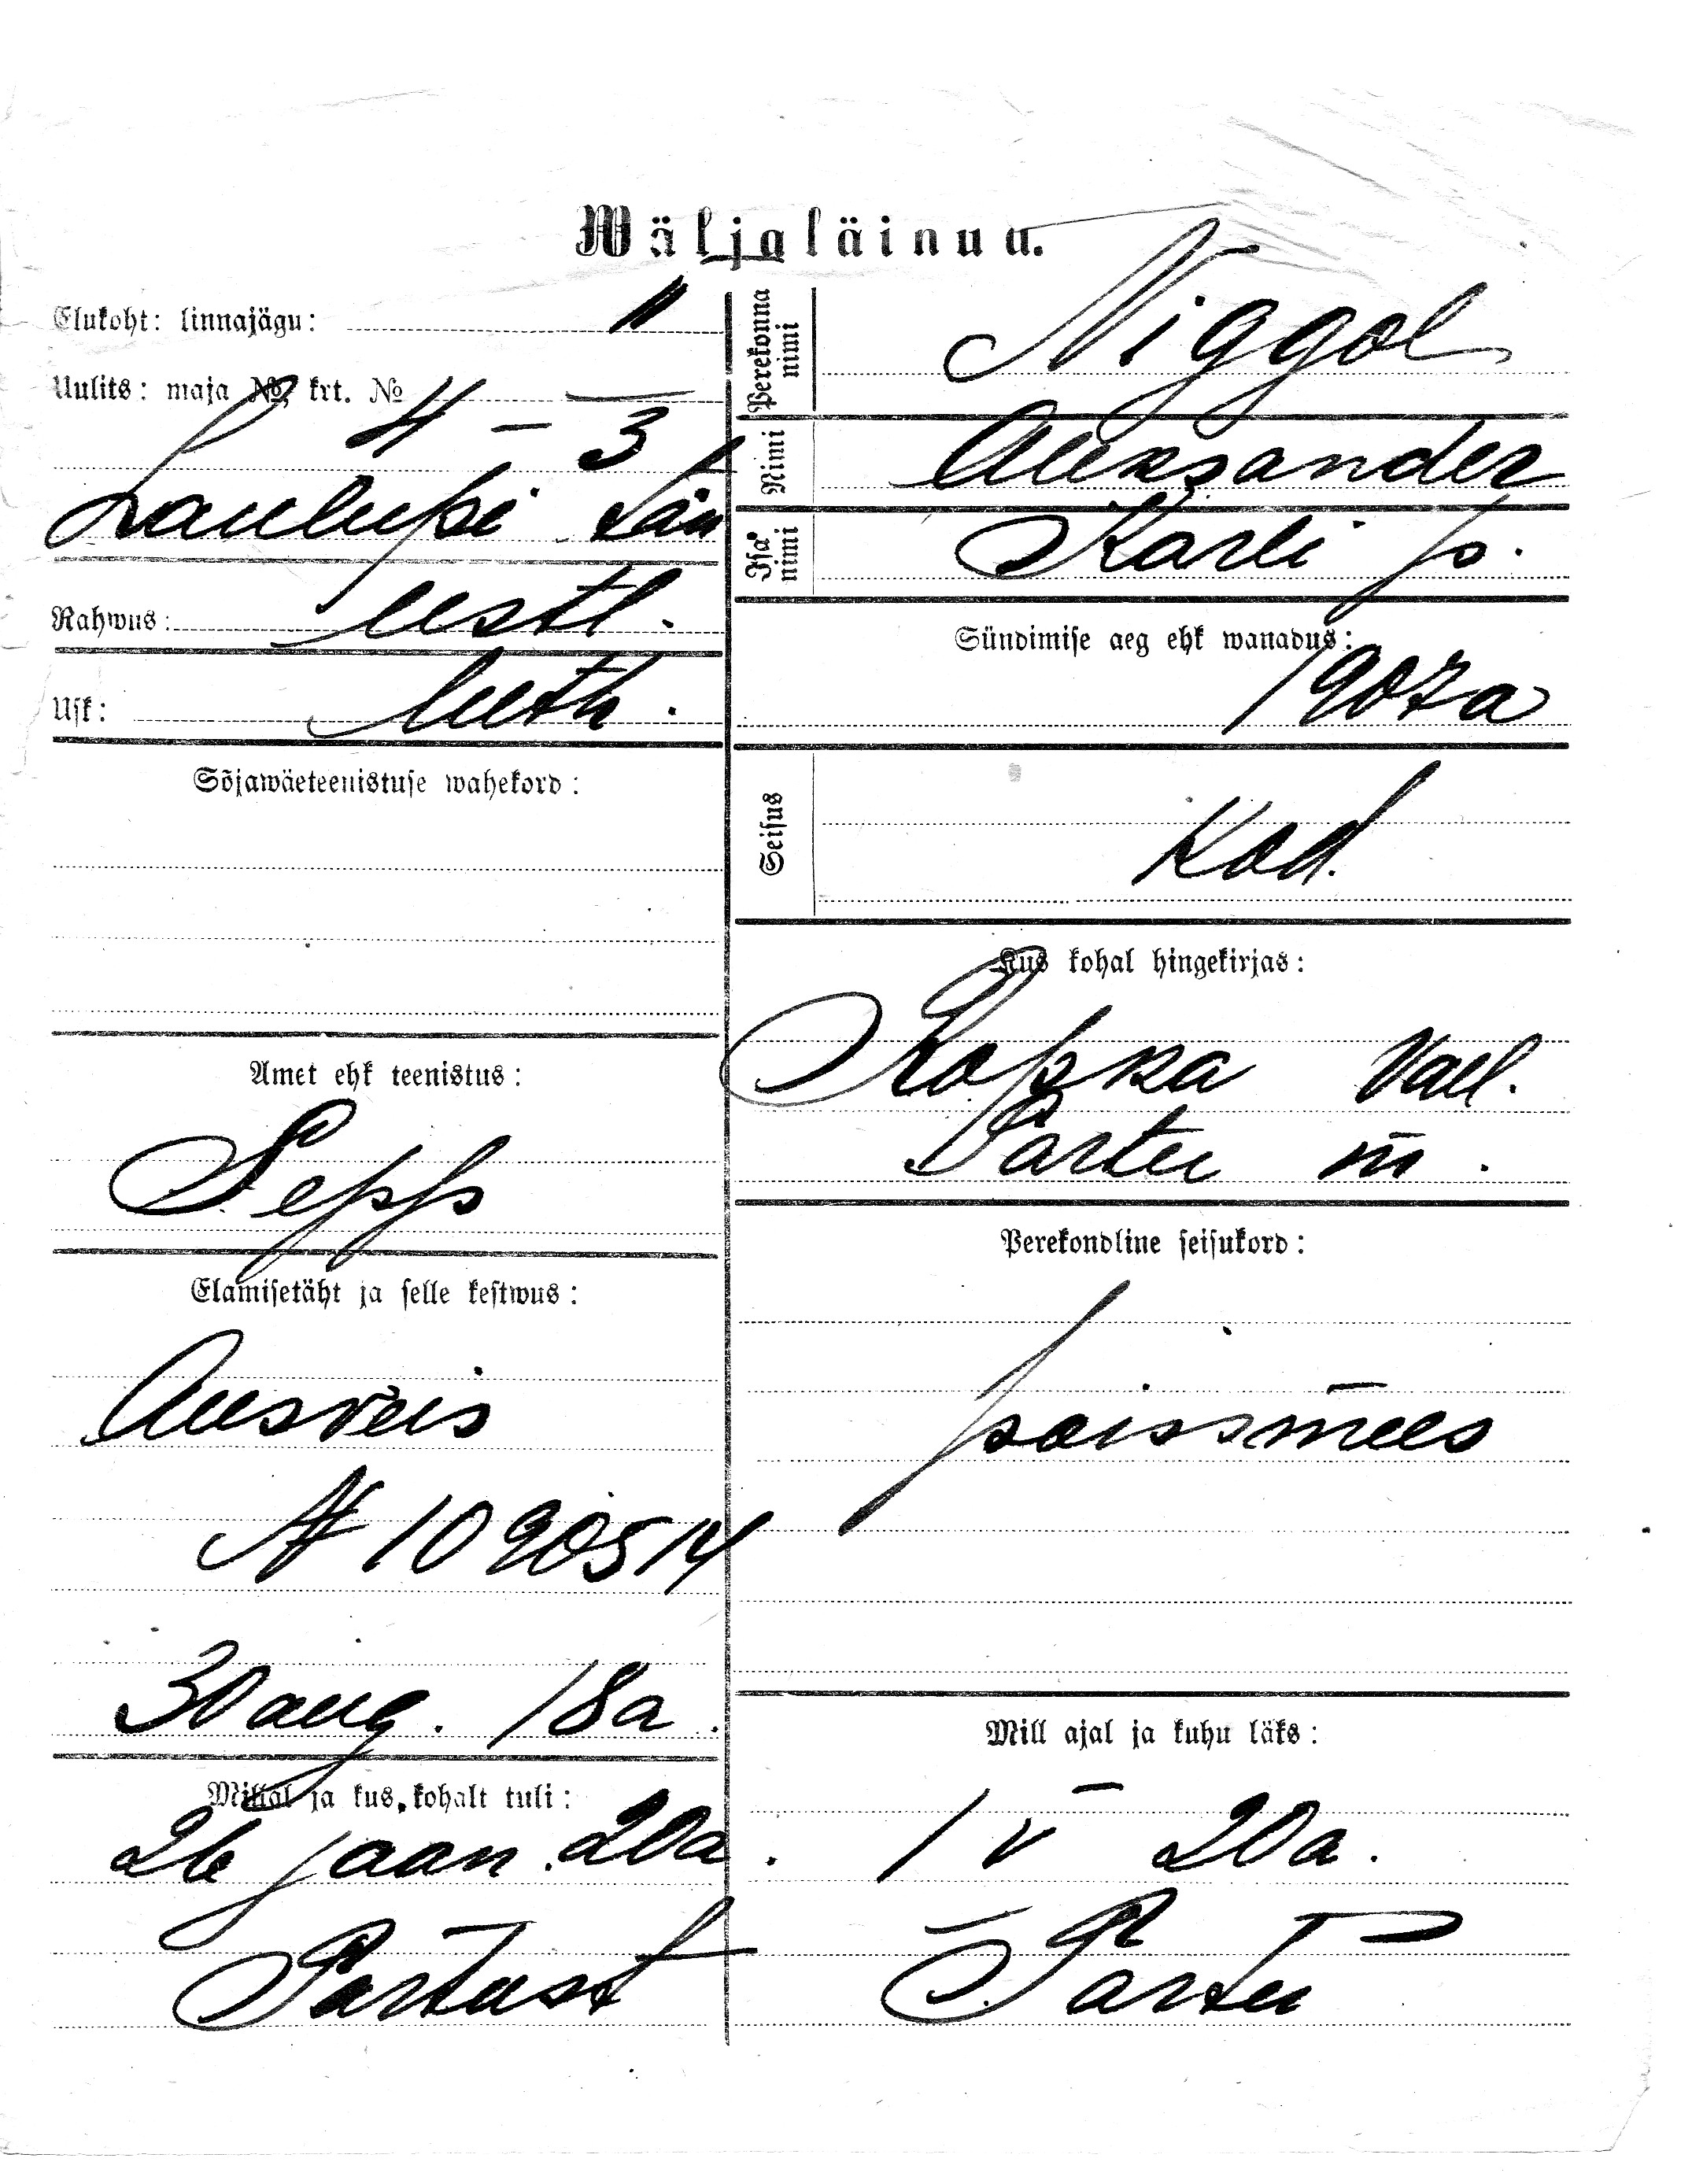 Wäljaläinuu.
Elukoht: linnajägu: II
Uulits: maja №, krt. №
4 – 3
Laulupi tän
Rahwus: eestl.
Usk: luth.
Sõjawäeteenistuse wahekord:
Amet ehk teenistus:
Sepp
Elamisetäht ja selle kestwus:
Ausveis
№ 1090514
30 aug. 18a.
Millal ja kus kohalt tuli:
26 jaan. 20a.
Tartust
Perekonna nimi Niggol
Nimi Aleksander
Isa nimi Karli p.
Sündimise aeg ehk wanadus:
1907a
Seisus Kod.
Kus kohal hingekirjas:
Ropka vall.
Tartu m.
Perekondline seisukord:
poissmees
Mill ajal ja kuhu läks:
1 V 20a.
Tartu